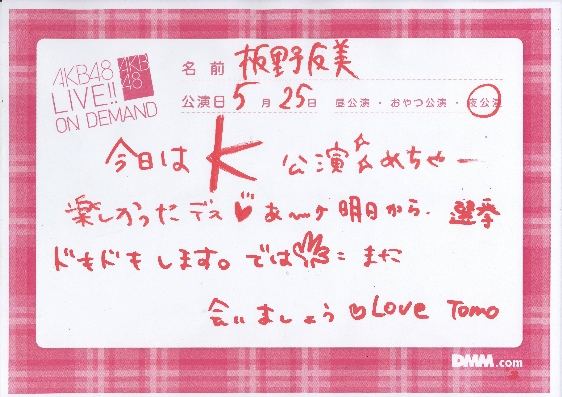 AKB48
LIVE!!
ON DEMAND
AKB
48
名前 板野友美
公演日 5月25日 昼公演・おやつ公演・夜公演
今日は K 公演☆☆めちゃー
楽しかったデス♥あ〜ッ明日から、選挙
ドキドキします。では また
会いましょう♡Love Tomo
DMM.com